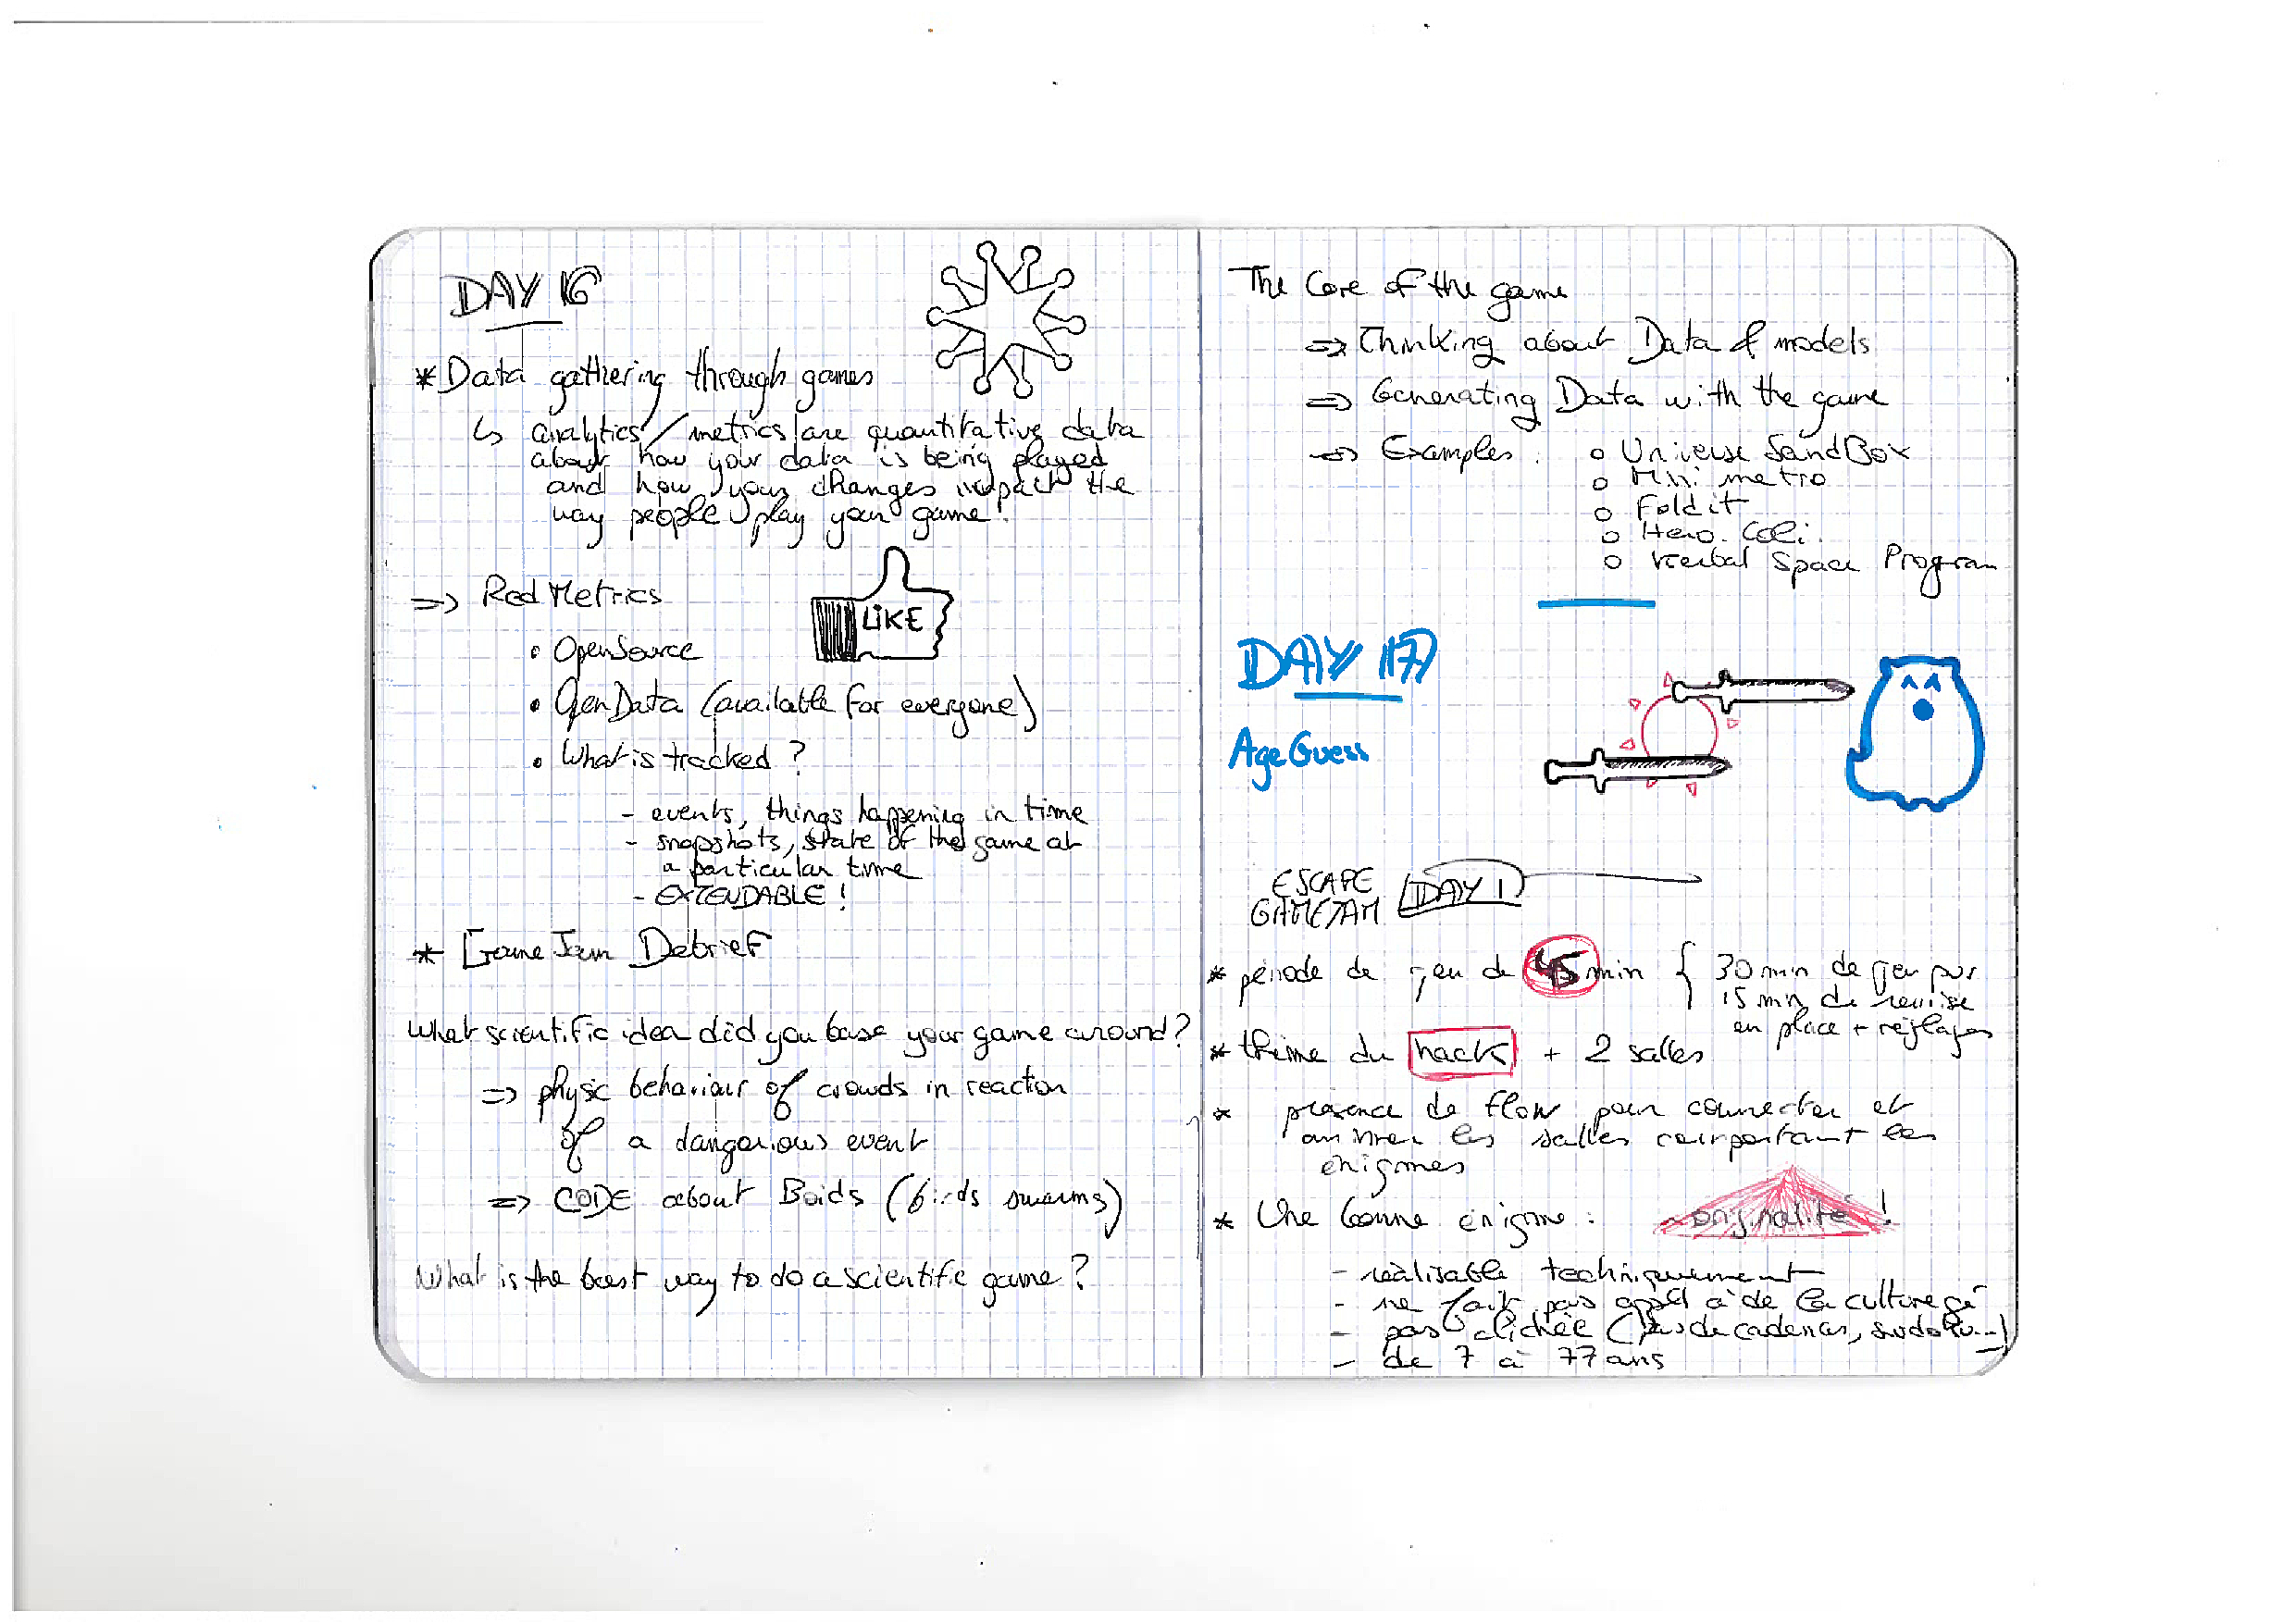 DAY 16
* Data gathering through games
↳ analytics / metrics are quantitative data
about how your data is being played
and how your changes impact the
way people play your game!
=> RedMetrics
LIKE
• OpenSource
• OpenData (available for everyone)
• What is tracked?
- events, things happening in time
- snapshots, state of the game at
a particular time
- EXTENDABLE!
* Game Jam Debrief
What scientific idea did you base your game around?
=> physic behaviour of crowds in reaction
of a dangerious event
=> CODE about Boids (birds swarms)
What is the best way to do a scientific game?
The Core of the game
=> Thinking about Data & models
=> Generating Data with the game
=> Examples : o Universe SandBox
o Mini metro
o Fold it
o Hero. Coli.
o Kerbal Space Program
DAY 17
Age Guess
ESCAPE
GAMEJAM DAY 1
* période de jeu de 45 min { 30 min de jeu pur
15 min de remise
en place + réglages
* thème du hack + 2 salles
* présence de flow pour connecter et
animer les salles comportant les
énigmes
* Une bonne énigme : originalité !
- réalisable techniquement
- ne fait pas appel à de la culture gé
- pas clichée (pas de cadenas, sudoku...)
- de 7 à 77 ans